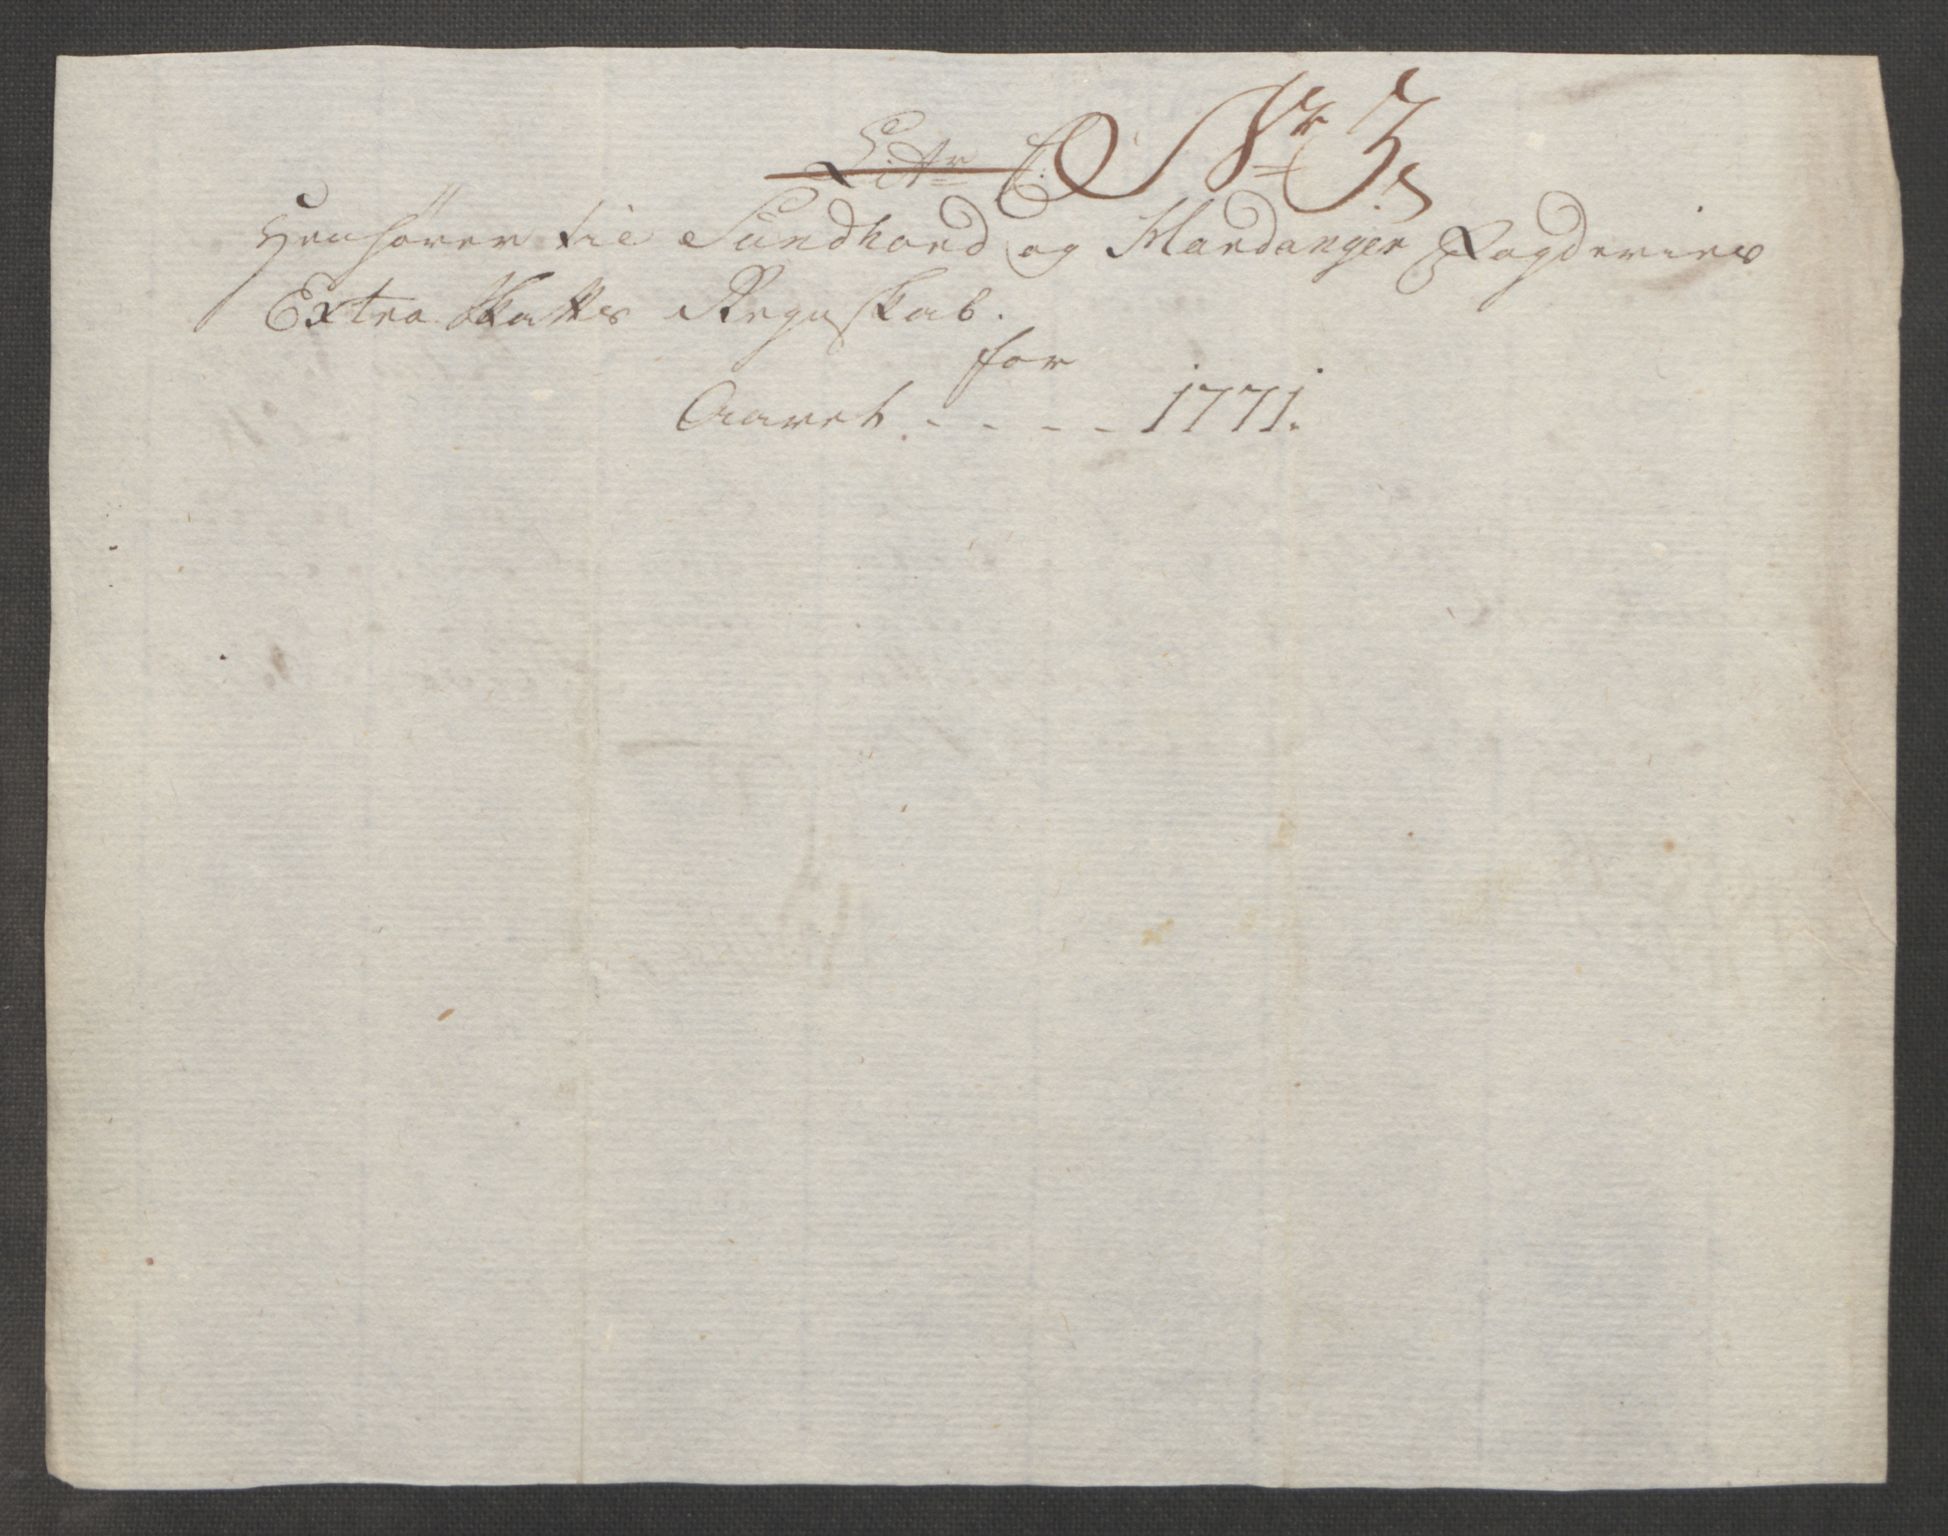 Litr C. Nr 3.
Henhører til Sundhord og Hardanger Fogderies
Extra Skatts Regnskab.
for
Aaret - - - - 1771.